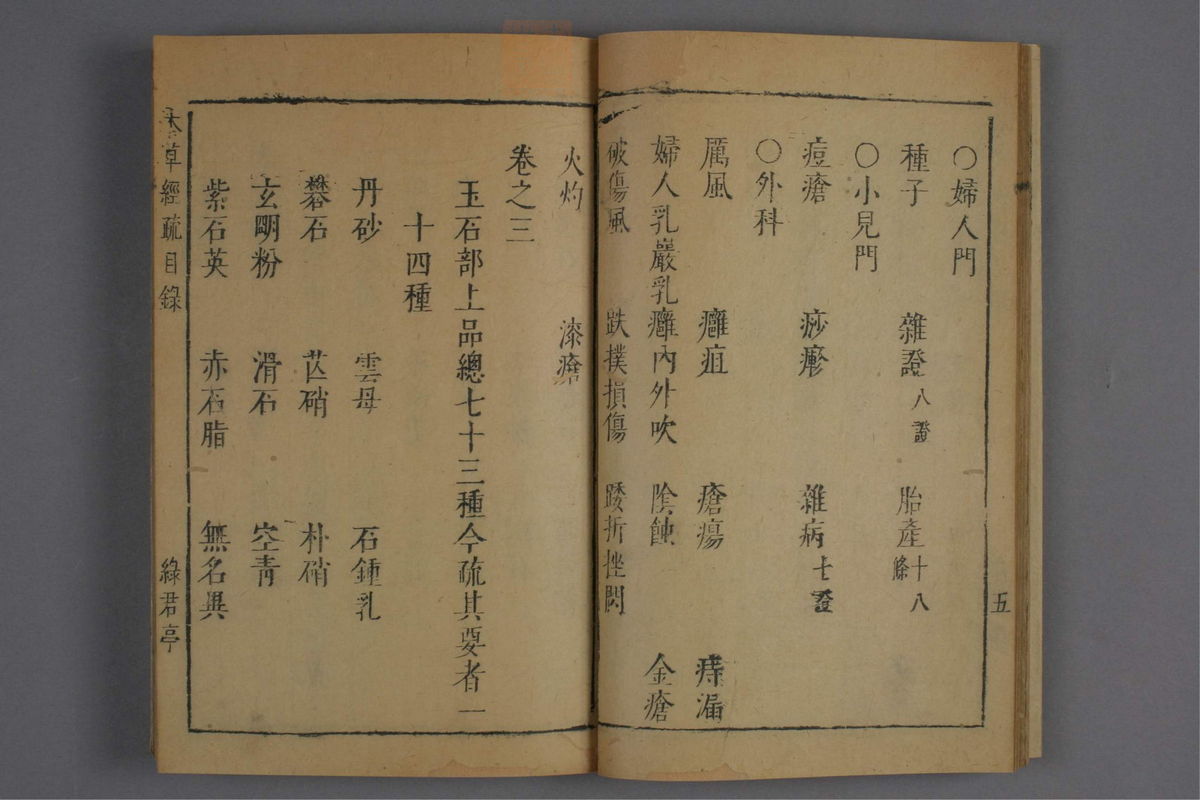 五
〇婦人門
種子 雜證八證 胎產十八條
〇小兒門
痘瘡 痧疹 雜病七證
〇外科
厲風 癰疽 瘡瘍 痔漏
婦人乳巖乳癰內外吹 陰蝕 金瘡
破傷風 跌撲損傷 踒折挫閃
火灼 漆瘡
卷之三
玉石部上品總七十三種今疏其要者一
十四種
丹砂 雲母 石鍾乳
礬石 芒硝 朴硝
玄明粉 滑石 空青
紫石英 赤石脂 無名異
本草經疏目錄 綠君亭